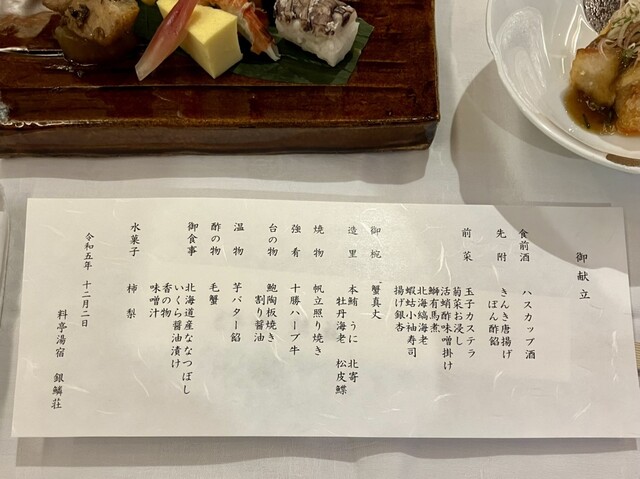 御献立
食前酒 ハスカップ酒
先附 きんき唐揚げ
ぽん酢餡
前菜 玉子カステラ
菊菜お浸し
活蛸酢味噌掛け
鰤有馬煮
北海縞海老
蝦蛄小袖寿司
揚げ銀杏
御椀 蟹真丈
造里 本鮪 うに 北寄
牡丹海老 松皮鰈
焼物 帆立照り焼き
強肴 十勝ハーブ牛
台の物 鮑陶板焼き
割り醤油
温物 芋バター餡
酢の物 毛蟹
御食事 北海道産ななつぼし
いくら醤油漬け
香の物
味噌汁
水菓子 柿 梨
令和五年 十二月二日
料亭湯宿 銀鱗荘